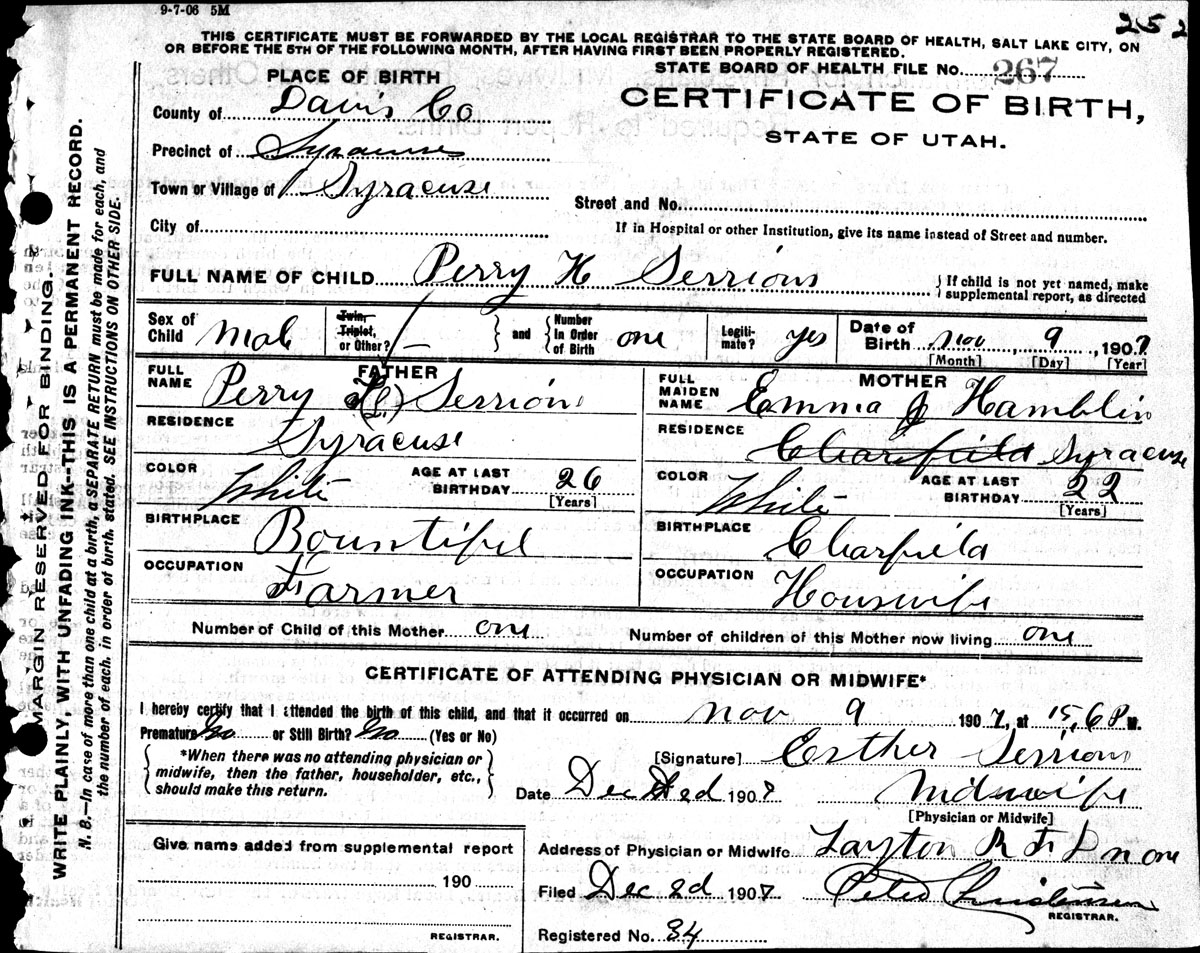 9-7-06 5M
252
THIS CERTIFICATE MUST BE FORWARDED BY THE LOCAL REGISTRAR TO THE STATE BOARD OF HEALTH, SALT LAKE CITY, ON
OR BEFORE THE 5TH OF THE FOLLOWING MONTH, AFTER HAVING FIRST BEEN PROPERLY REGISTERED.
STATE BOARD OF HEALTH FILE No. 267
CERTIFICATE OF BIRTH,
STATE OF UTAH.
PLACE OF BIRTH
County of Davis Co
Precinct of Syracuse
Town or Village of Syracuse
Street and No.
City of
If in Hospital or other Institution, give its name instead of Street and number.
FULL NAME OF CHILD Perry H Serrions
If child is not yet named, make
supplemental report, as directed
Sex of Child Male
Twin, Triplet, or Other? and Number in Order of Birth one
Legitimate? yes
Date of Birth Nov 9, 1907
[Month] [Day] [Year]
FATHER
FULL NAME Perry Serrions
RESIDENCE Syracuse
COLOR White AGE AT LAST BIRTHDAY 26
[Years]
BIRTHPLACE Bountiful
OCCUPATION Farmer
MOTHER
FULL MAIDEN NAME Emma J Hamblin
RESIDENCE Clearfield Syracuse
COLOR White AGE AT LAST BIRTHDAY 22
[Years]
BIRTHPLACE Clearfield
OCCUPATION Housewife
Number of Child of this Mother one
Number of children of this Mother now living one
CERTIFICATE OF ATTENDING PHYSICIAN OR MIDWIFE*
I hereby certify that I attended the birth of this child, and that it occurred on Nov 9 1907, at P M.
Premature No or Still Birth? No (Yes or No)
*When there was no attending physician or
midwife, then the father, householder, etc.,
should make this return.
[Signature] Esther Serrions
Date Dec 2d 1907 Midwife
[Physician or Midwife]
Address of Physician or Midwife Layton R F D no one
Filed Dec 2d 1907 Peter Christensen
REGISTRAR.
Registered No. 84
Give name added from supplemental report
190
REGISTRAR.
MARGIN RESERVED FOR BINDING.
WRITE PLAINLY, WITH UNFADING INK--THIS IS A PERMANENT RECORD.
N. B.—In case of more than one child at a birth, a SEPARATE RETURN must be made for each, and
the number of each, in order of birth, stated. SEE INSTRUCTIONS ON OTHER SIDE.